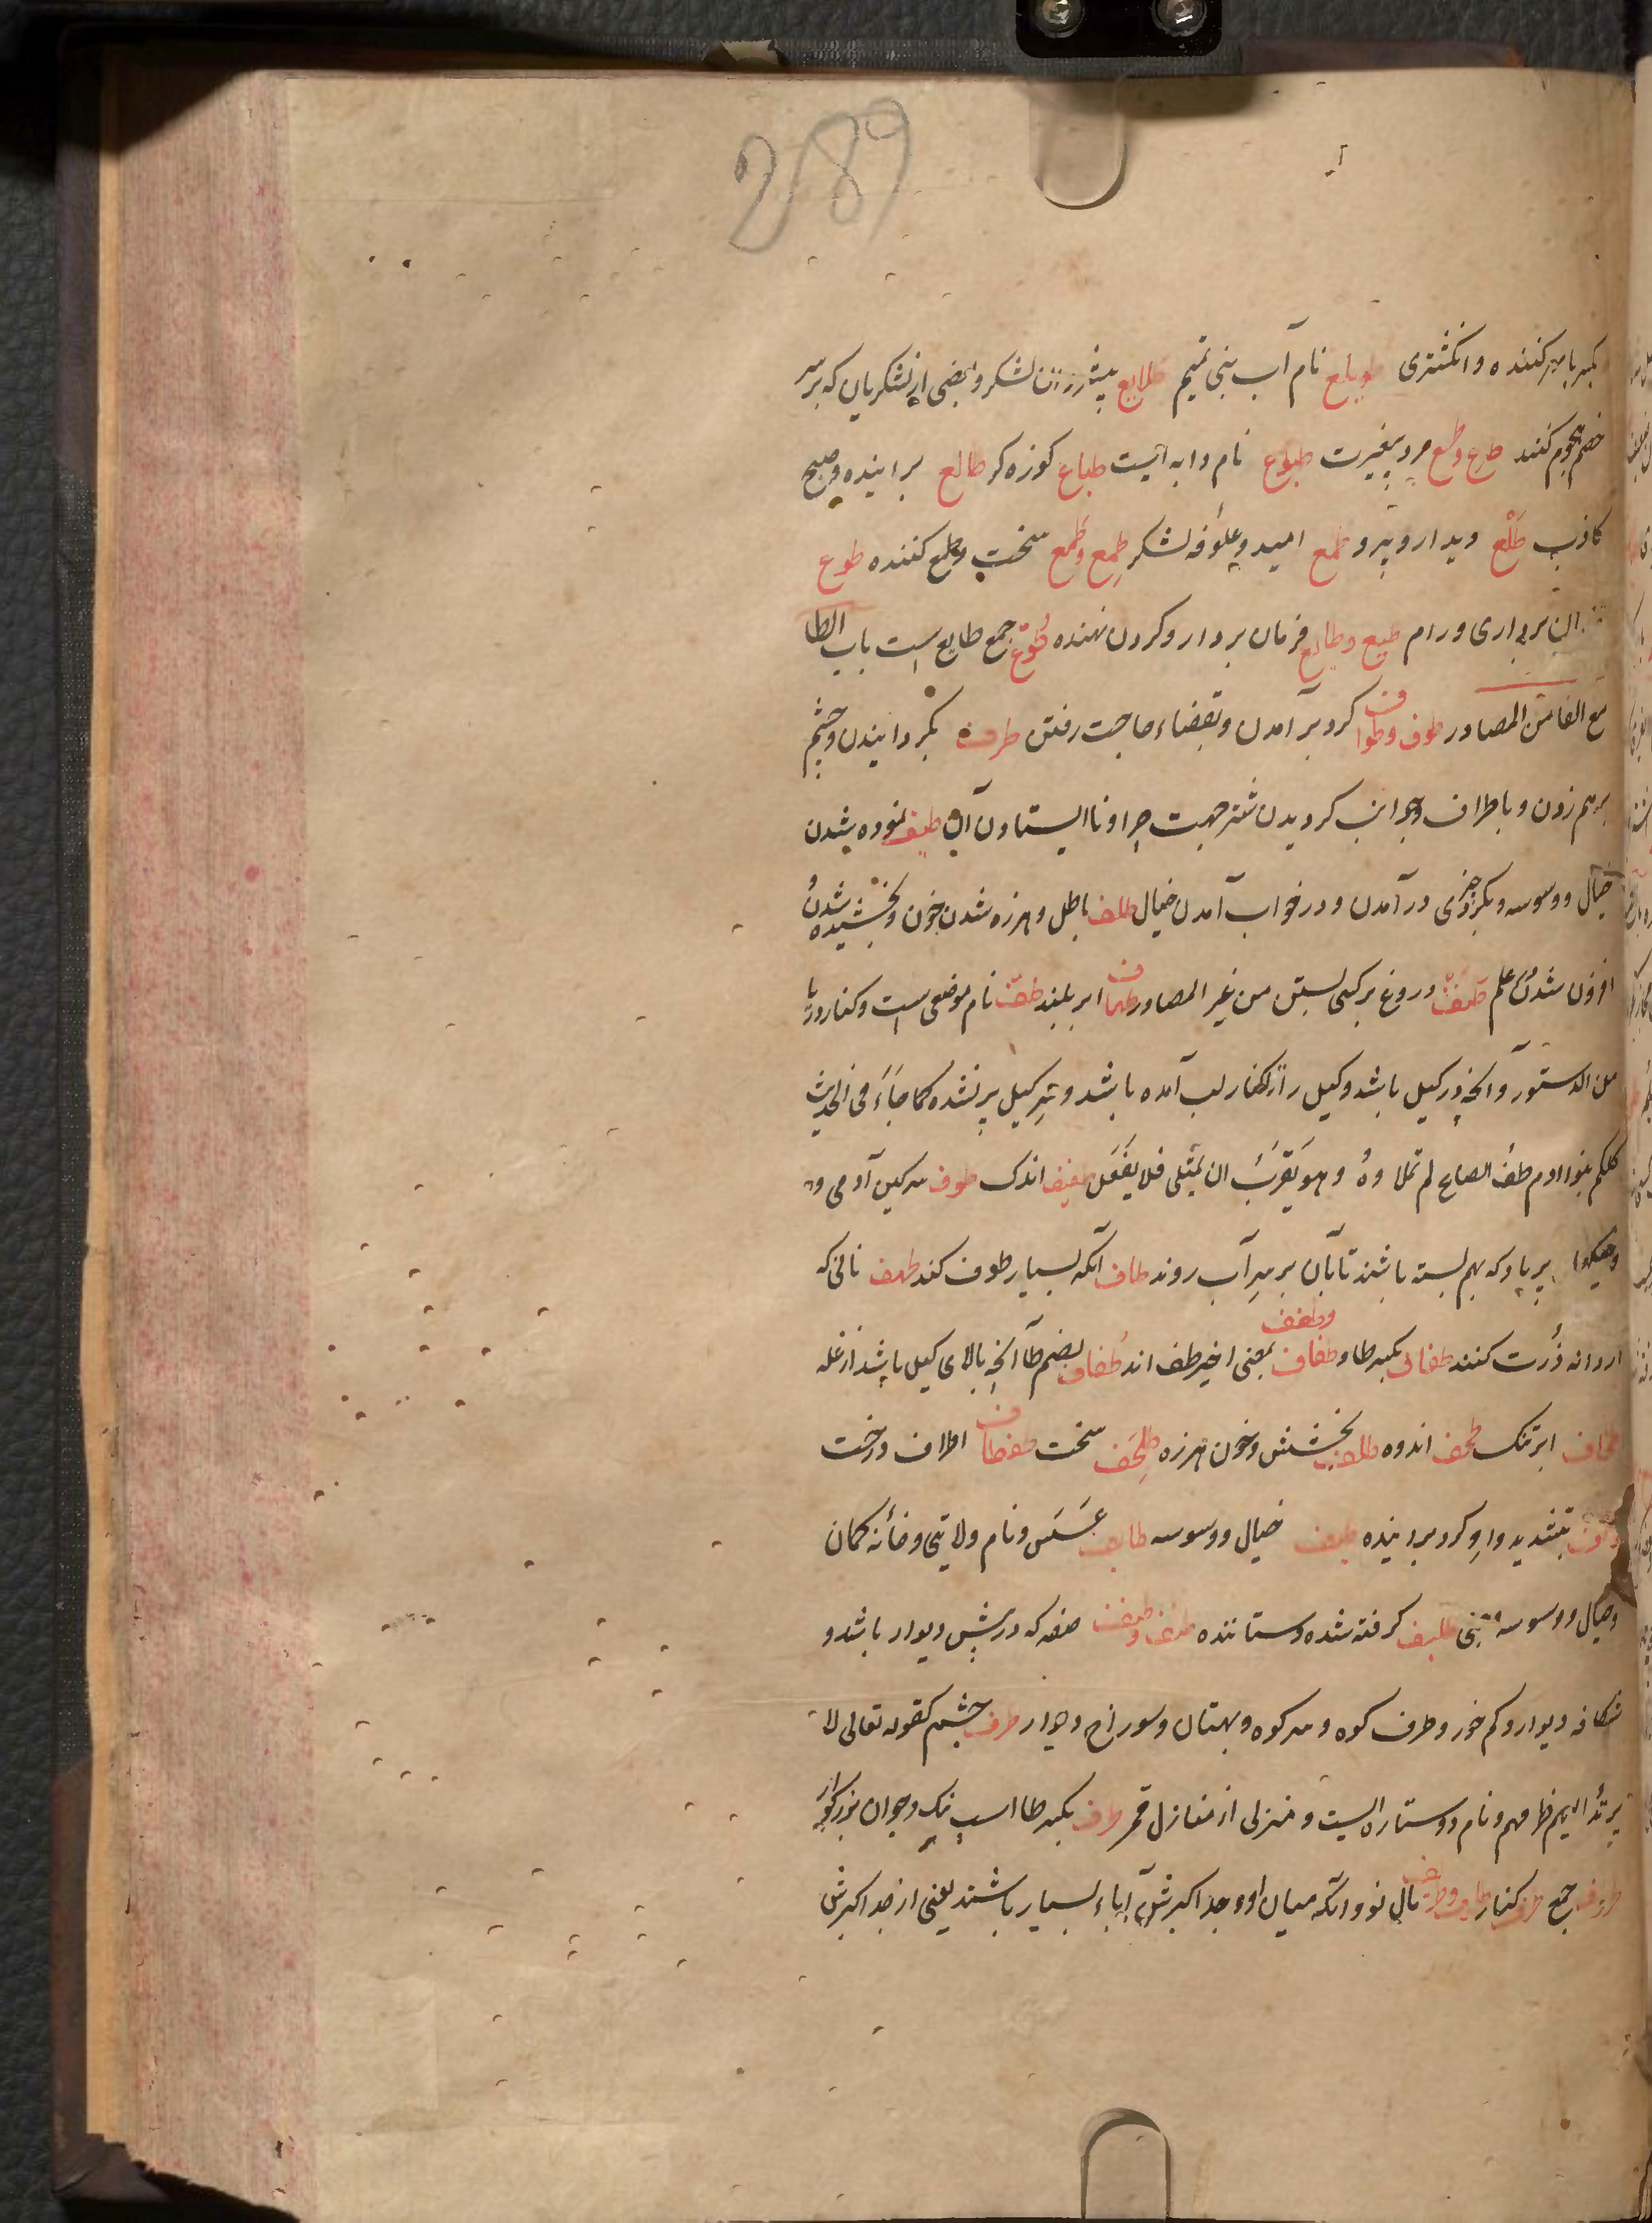 289
بکسر با مهر کننده و انکشتری طویلع نام آب بنی تمیم طلایع پیش روان لشکر و بعضی از لشکریان که بر سر
خصم هجوم کنند طزع و طسع مرد بیغیرت طبوع نام دابه ایست طباع کوزه کر طالع براینده و صبح
کاذب طلع دیدار و پیرو طمع امید و علوفه لشکر طمِع و طمُع سخت طمع کننده طوع
فرمان برداری و رام طیع و طایع فرمان بردار و کردن نهنده طوّع جمع طایع است باب الطا
مع الفا من المصادر طوف و طواف کرد بر آمدن و بقضاء حاجت رفتن طرف بکردانیدن و چشم
برهم زدن و باطراف و جوانب کردیدن شتر جهت چرا و نا ایستادن آن طیف نموده شدن
خیال و وسوسه و بکرد چیزی در آمدن و در خواب آمدن خیال طلف باطل و هرزه شدن خون و بخشیده شدن و
افزون شدن علم دروغ بر کسی بستن من غیر المصادر طهاف ابر بلند طف نام موضعی است و کنار دریا
من الدستور و آنچه در کیل باشد و کیل را از کنار لب آمده باشد و سر کیل پر نشده کما جاء فی الحدیث
کلکم بنوا ادم طف الصاع لم تملاوهُ و هو یقرب ان یمتلی فلا یفعل طفیف اندک طوف سرکین آدمی و
پر باد که بهم بسته باشند تا بان بر سر آب روند طاف آنکه بسیار طوف کند طهف نانی که
از دانه ذُرت کنند طفاف بکسر طا و طفاف و طفف بمعنی اخیر طف اند طفاف بضم طا آنچه بالای کیل باشد از غله
طخاف ابر تنک طخف اندوه طلف بخشش و خون هرزه طلخف سخت طفطاف اطراف درخت
طواف بتشدید واو کرد براینده طیف خیال و وسوسه طایف عسس و نام ولایتی و خانه کمان
و خیال و وسوسه طلیف کرفته شده و ستاننده طنف و طنف صفه که در پیش دیوار باشد و
شکافه دیوار و کم خور و طرف کوه و سر کوه و بهتان و سوراخ دیوار طرف چشم کقوله تعالی لا
یرتد الیهم طرفهم و نام دو ستاره ایست و منزلی از منازل قمر طرف بکسر طا اسب نیک و جوان بزرکوار
طروف جمع طرف کنار طارف و طریف مال نو و آنکه میان او و جد اکبرش آباء بسیار باشند یعنی از جد اکبرش